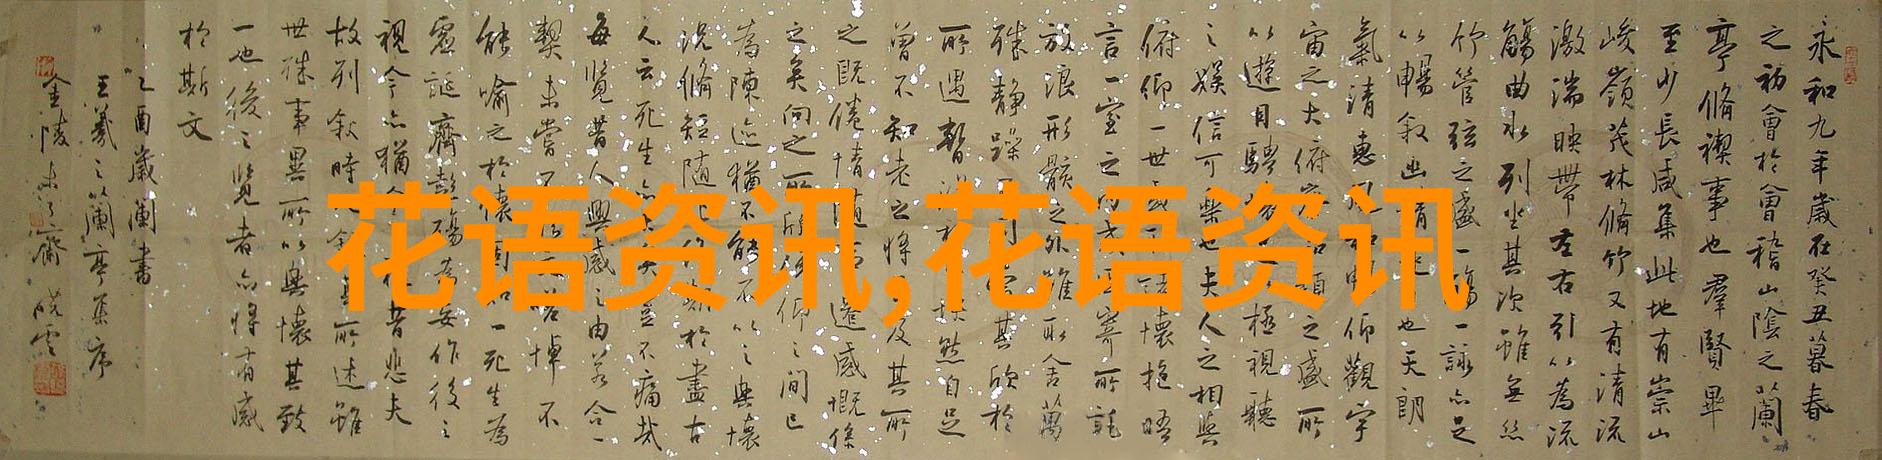 永和九年歲在癸丑暮春
之初會於會稽山陰之蘭
亭脩禊事也羣賢畢
至少長咸集此地有崇山
峻嶺茂林脩竹又有清流
激湍映帶左右引以為流
觴曲水列坐其次雖無絲
竹管弦之盛一觴一詠亦足
以暢敘幽情也天朗
氣清惠風和仰觀宇
宙之大俯察類之盛所
以遊目騁極視聽
之娛信可樂也夫人之相與
俯仰一世或懷抱晤
言一室之內寄所託
放浪形骸之外雖取舍萬
殊靜躁不同其欣於
所遇暫然自足
曾不知老之將及其所
之既倦情隨遷感慨係
之矣向之所欣仰之間已
為陳迹猶不能不以之興懷
況脩短隨化於盡古
人云死生亦大矣豈不痛哉
每覽昔人興感之由若合一
契未嘗不悼不
能喻之於懷固知一死生為
虛誕齊彭殤為妄作後之
視今亦猶今昔悲夫
故列敘時人所述雖
世殊事異所以興懷其致
一也後之覽者亦將有感
於斯文
乙酉歲蘭書
王羲之蘭亭集序
金陵齋雲
花语资讯,花语资讯